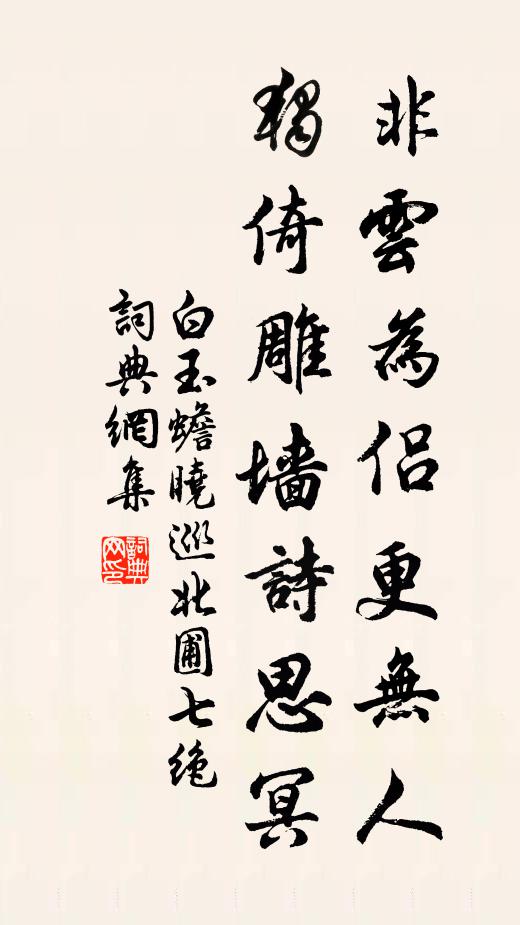 非雲為侶更無人
獨倚雕墻詩思冥
白玉蟾曉巡北圃七绝
詞典網集
詞典
网印